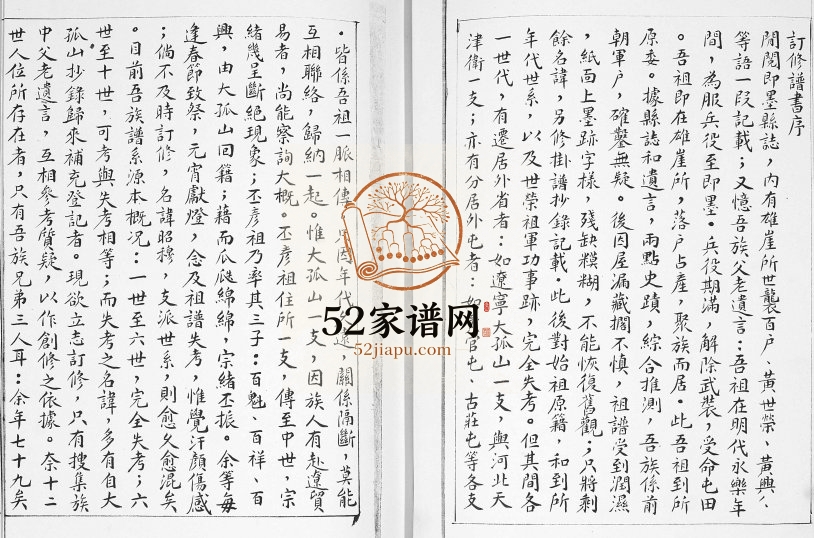 訂修譜書序
閒閱即墨縣誌，內有雄崖所世襲百户、黃世榮、黃興、
等語一段記載；又憶吾族父老遺言：吾祖在明代永樂年
間，為服兵役至即墨。兵役期滿，解除武裝，受命屯田
。吾祖即在雄崖所，落户占產，聚族而居。此吾祖到所
原委。據縣誌和遺言，兩點史蹟，綜合推測，吾族係前
朝軍户，確鑿無疑。後因屋漏藏擱不慎，祖譜受到潤濕
，紙面上墨跡字樣，殘缺糢糊，不能恢復舊觀；只將剩
餘名諱，另修掛譜抄錄記載。此後對始祖原籍，和到所
年代世系，以及世榮祖軍功事跡，完全失考。但其間各
一世代，有遷居外省者：如遼寧大孤山一支，與河北天
津衛一支；亦有分居外屯者：如官屯、古莊屯等各支
。皆係吾祖一脈相傳，只因年代遠，關係隔斷，莫能
互相聯絡，歸納一起。惟大孤山一支，因族人有赴遼貿
易者，尚能察詢大概。丕彥祖住所一支，傳至中世，宗
緒幾呈斷絕現象；丕彥祖乃率其三子：百魁、百祥、百
興，由大孤山回籍；藉而瓜瓞綿綿，宗緒丕振。余等每
逢春節致祭，元宵獻燈，念及祖譜失考，惟覺汗顏傷感
；倘不及時訂修，名諱昭穆，支派世系，則愈久愈混矣
。目前吾族譜系源本概況：一世至六世，完全失考；六
世至十世，可考與失考相等；而失考之名諱，多有自大
孤山抄錄歸來補充登記者。現欲立志訂修，只有搜集族
中父老遺言，互相參考質疑，以作創修之依據。奈十二
世人位所存在者，只有吾族兄弟三人耳：余年七十九矣
52家谱网
52jiapu.com